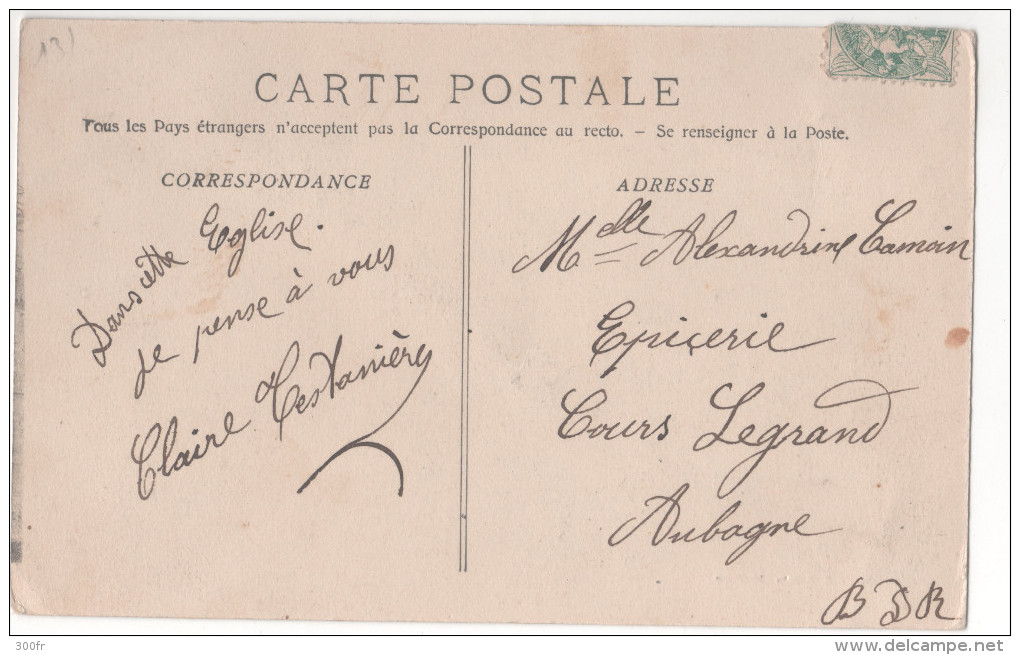 13)
CARTE POSTALE
Tous les Pays étrangers n'acceptent pas la Correspondance au recto. – Se renseigner à la Poste.
CORRESPONDANCE
Dans cette Eglise.
je pense à vous
Claire Testanière
ADRESSE
Melle Alexandrine Camoin
Epiçerie
Cours Legrand
Aubagne
B D R
300fr
www.delcampe.net